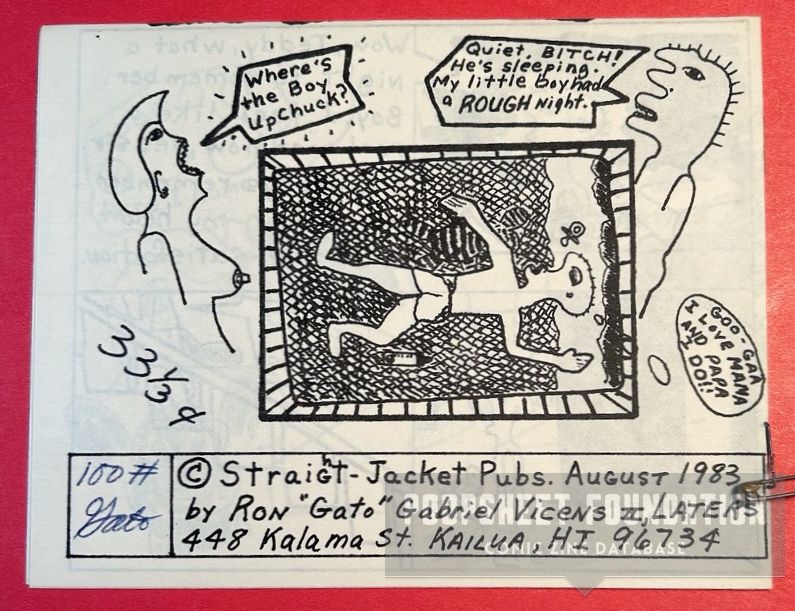 Where's
the Boy,
UpChuck?
Quiet, BITCH!
He's sleeping.
My little boy had
a ROUGH night.
33⅓¢
GOO-GAA
I LOVE MAMA
AND PAPA
I DO!!
100#
Gato
© Straight-Jacket Pubs. August 1983
by RON "Gato" Gabriel Vicens II, LATERS
448 Kalama St. KAILUA, HI 96734
POOPSHEET FOUNDATION
COMIC ZINE DATABASE